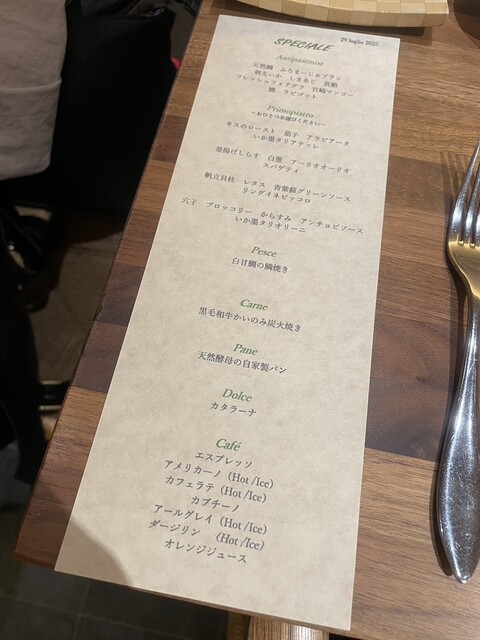 29 luglio 2025
SPECIALE
Antipastmist
天然鯛　ふろまーじゅブラン
剣先いか　しまあじ　真鯖
フレッシュフォアグラ　宮崎マンゴー
鱧　ラビゴット
Primopiatto
~おひとつお選びください~
キスのロースト　茄子　アラビアータ
いか墨タリアテッレ
釜揚げしらす　白葱　アーリオオーリオ
スパゲティ
帆立貝柱　レタス　青紫蘇グリーンソース
リングイネピッコロ
穴子　ブロッコリー　からすみ　アンチョビソース
いか墨タリオリーニ
Pesce
白甘鯛の鱗焼き
Carne
黒毛和牛かいのみ炭火焼き
Pane
天然酵母の自家製パン
Dolce
カタラーナ
Café
エスプレッソ
アメリカーノ（Hot /Ice）
カフェラテ（Hot /Ice）
カプチーノ
アールグレイ（Hot /Ice）
ダージリン　（Hot /Ice）
オレンジジュース